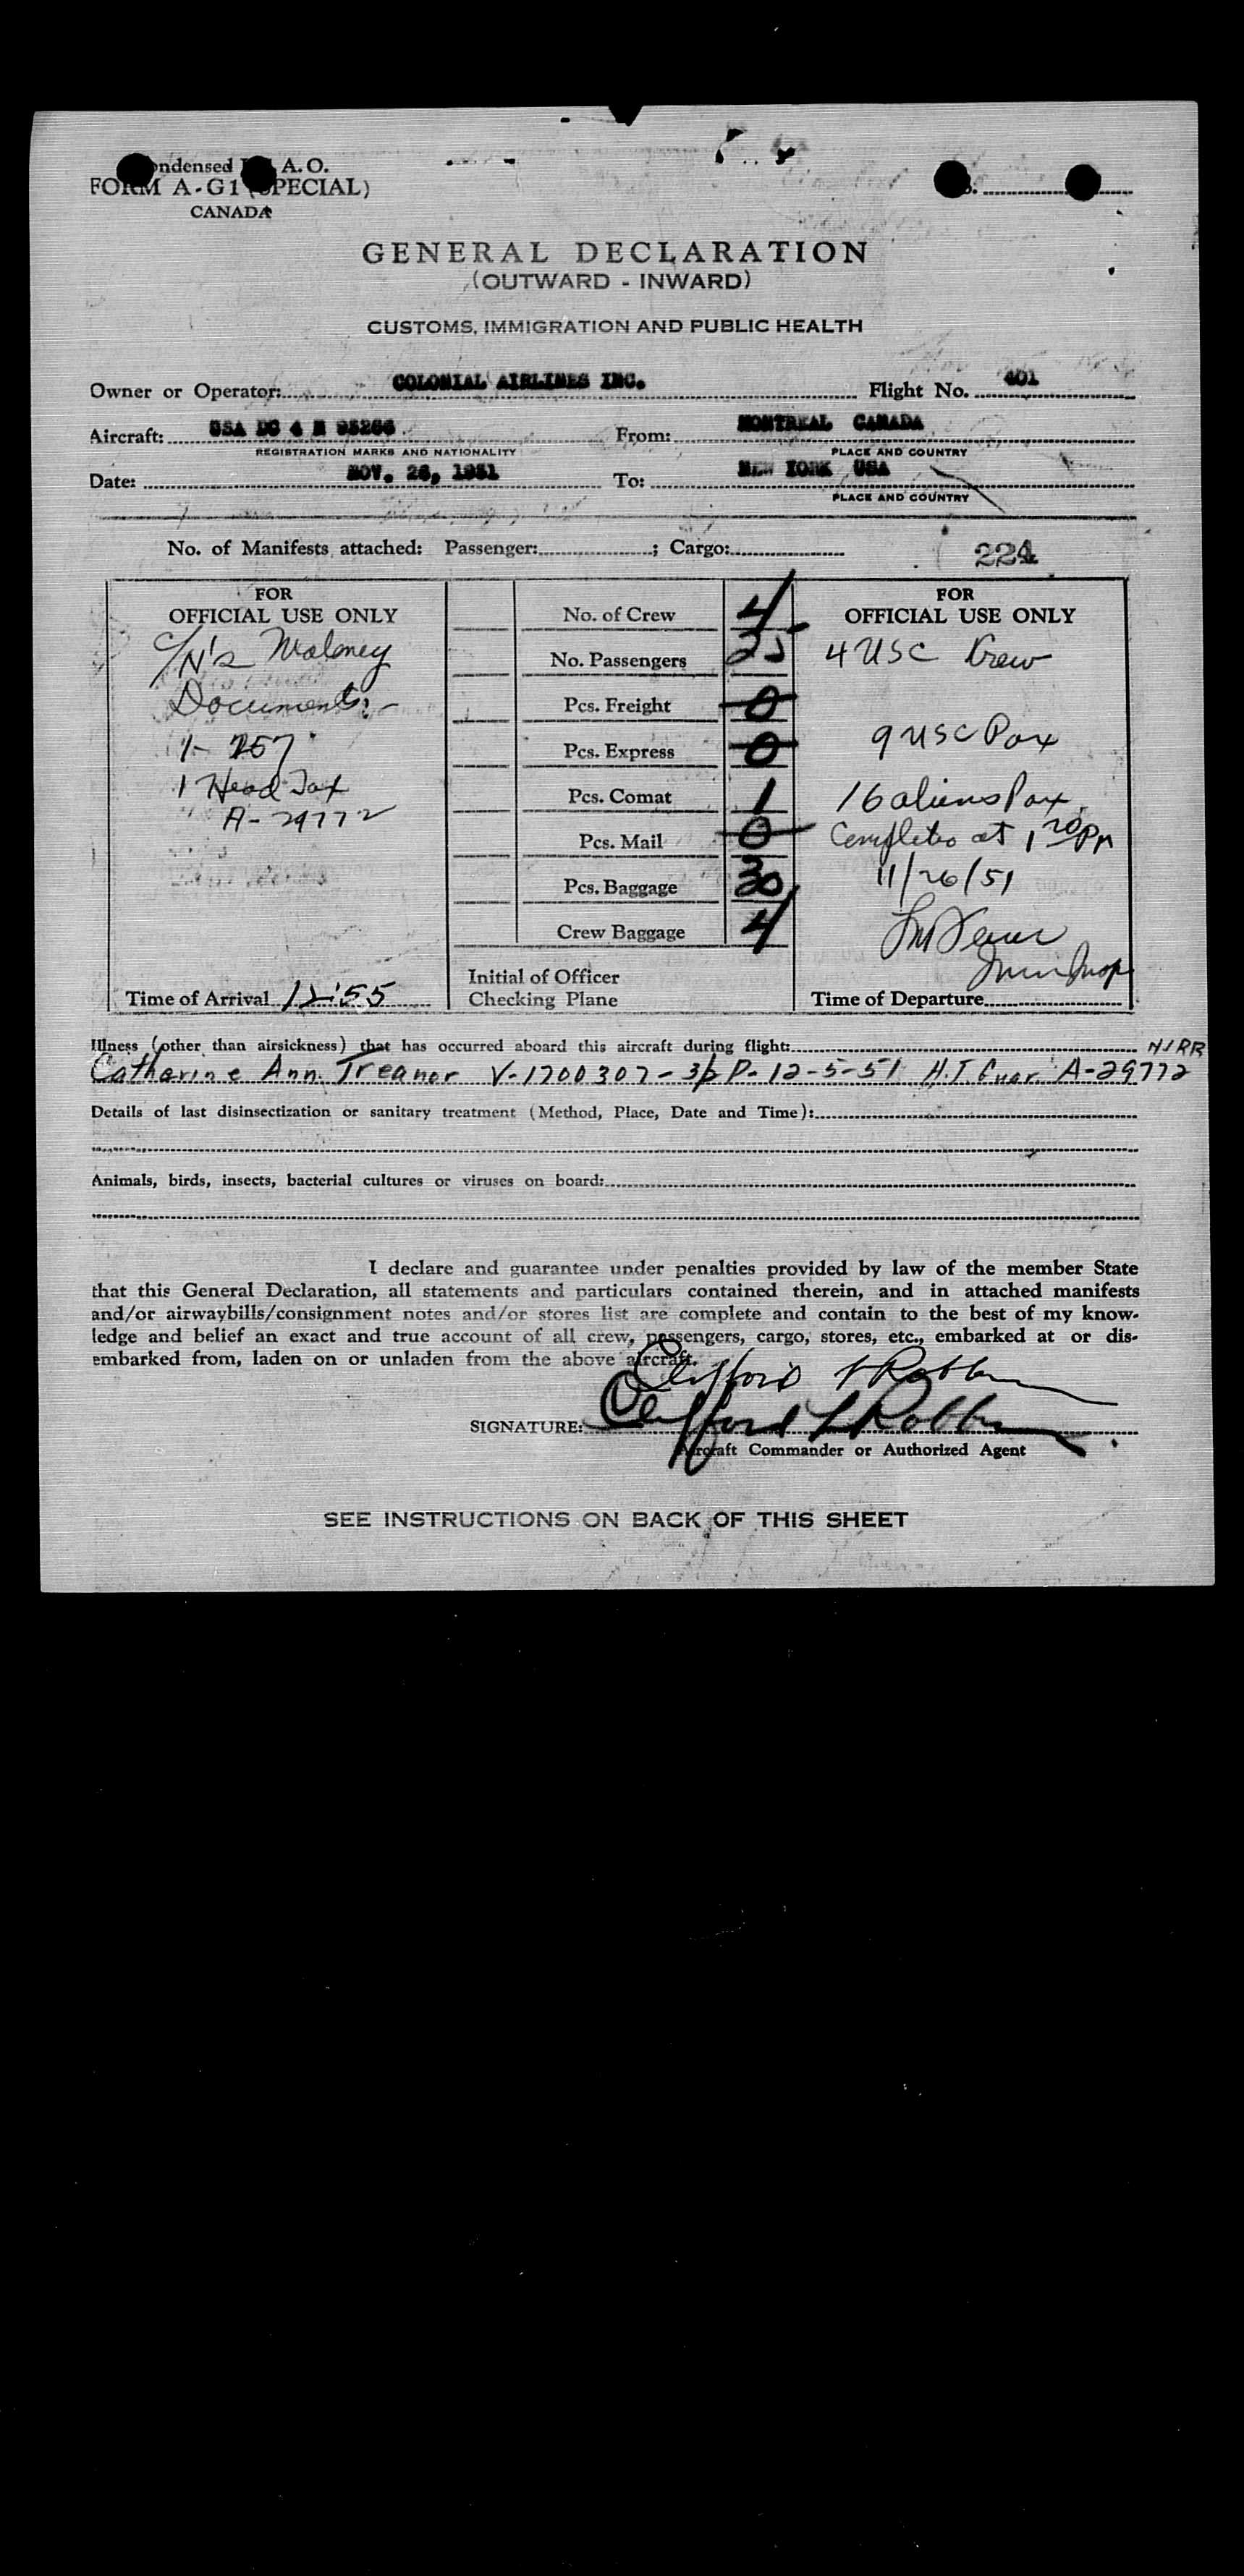 ondensed A.O.
FORM A-G1 (SPECIAL)
CANADA
GENERAL DECLARATION
(OUTWARD - INWARD)
CUSTOMS, IMMIGRATION AND PUBLIC HEALTH
Owner or Operator: COLONIAL AIRLINES INC. Flight No. 401
Aircraft: USA DC 4 N 95266 From: MONTREAL CANADA
REGISTRATION MARKS AND NATIONALITY PLACE AND COUNTRY
Date: NOV. 26, 1951 To: NEW YORK USA
PLACE AND COUNTRY
No. of Manifests attached: Passenger: ; Cargo:
224
FOR
OFFICIAL USE ONLY
C/N's Maloney
Documents:-
1- 257
1 Head Tax
A-29772
Time of Arrival 12:55
No. of Crew 4
No. Passengers 25
Pcs. Freight 0
Pcs. Express 0
Pcs. Comat 1
Pcs. Mail 0
Pcs. Baggage 30
Crew Baggage 4
Initial of Officer
Checking Plane
FOR
OFFICIAL USE ONLY
4 USC Crew
9 USC Pax
16 aliens Pax
Completed at 1 20 PM
11/26/51
Time of Departure
Illness (other than airsickness) that has occurred aboard this aircraft during flight:
Catharine Ann Treanor V-1700307-3(2) P-12-5-51 H.T. Guar. A-29772
Details of last disinsectization or sanitary treatment (Method, Place, Date and Time):
Animals, birds, insects, bacterial cultures or viruses on board:
I declare and guarantee under penalties provided by law of the member State
that this General Declaration, all statements and particulars contained therein, and in attached manifests
and/or airwaybills/consignment notes and/or stores list are complete and contain to the best of my know-
ledge and belief an exact and true account of all crew, passengers, cargo, stores, etc., embarked at or dis-
embarked from, laden on or unladen from the above aircraft.
Clifford L Robb
SIGNATURE: Clifford L Robb
Aircraft Commander or Authorized Agent
SEE INSTRUCTIONS ON BACK OF THIS SHEET